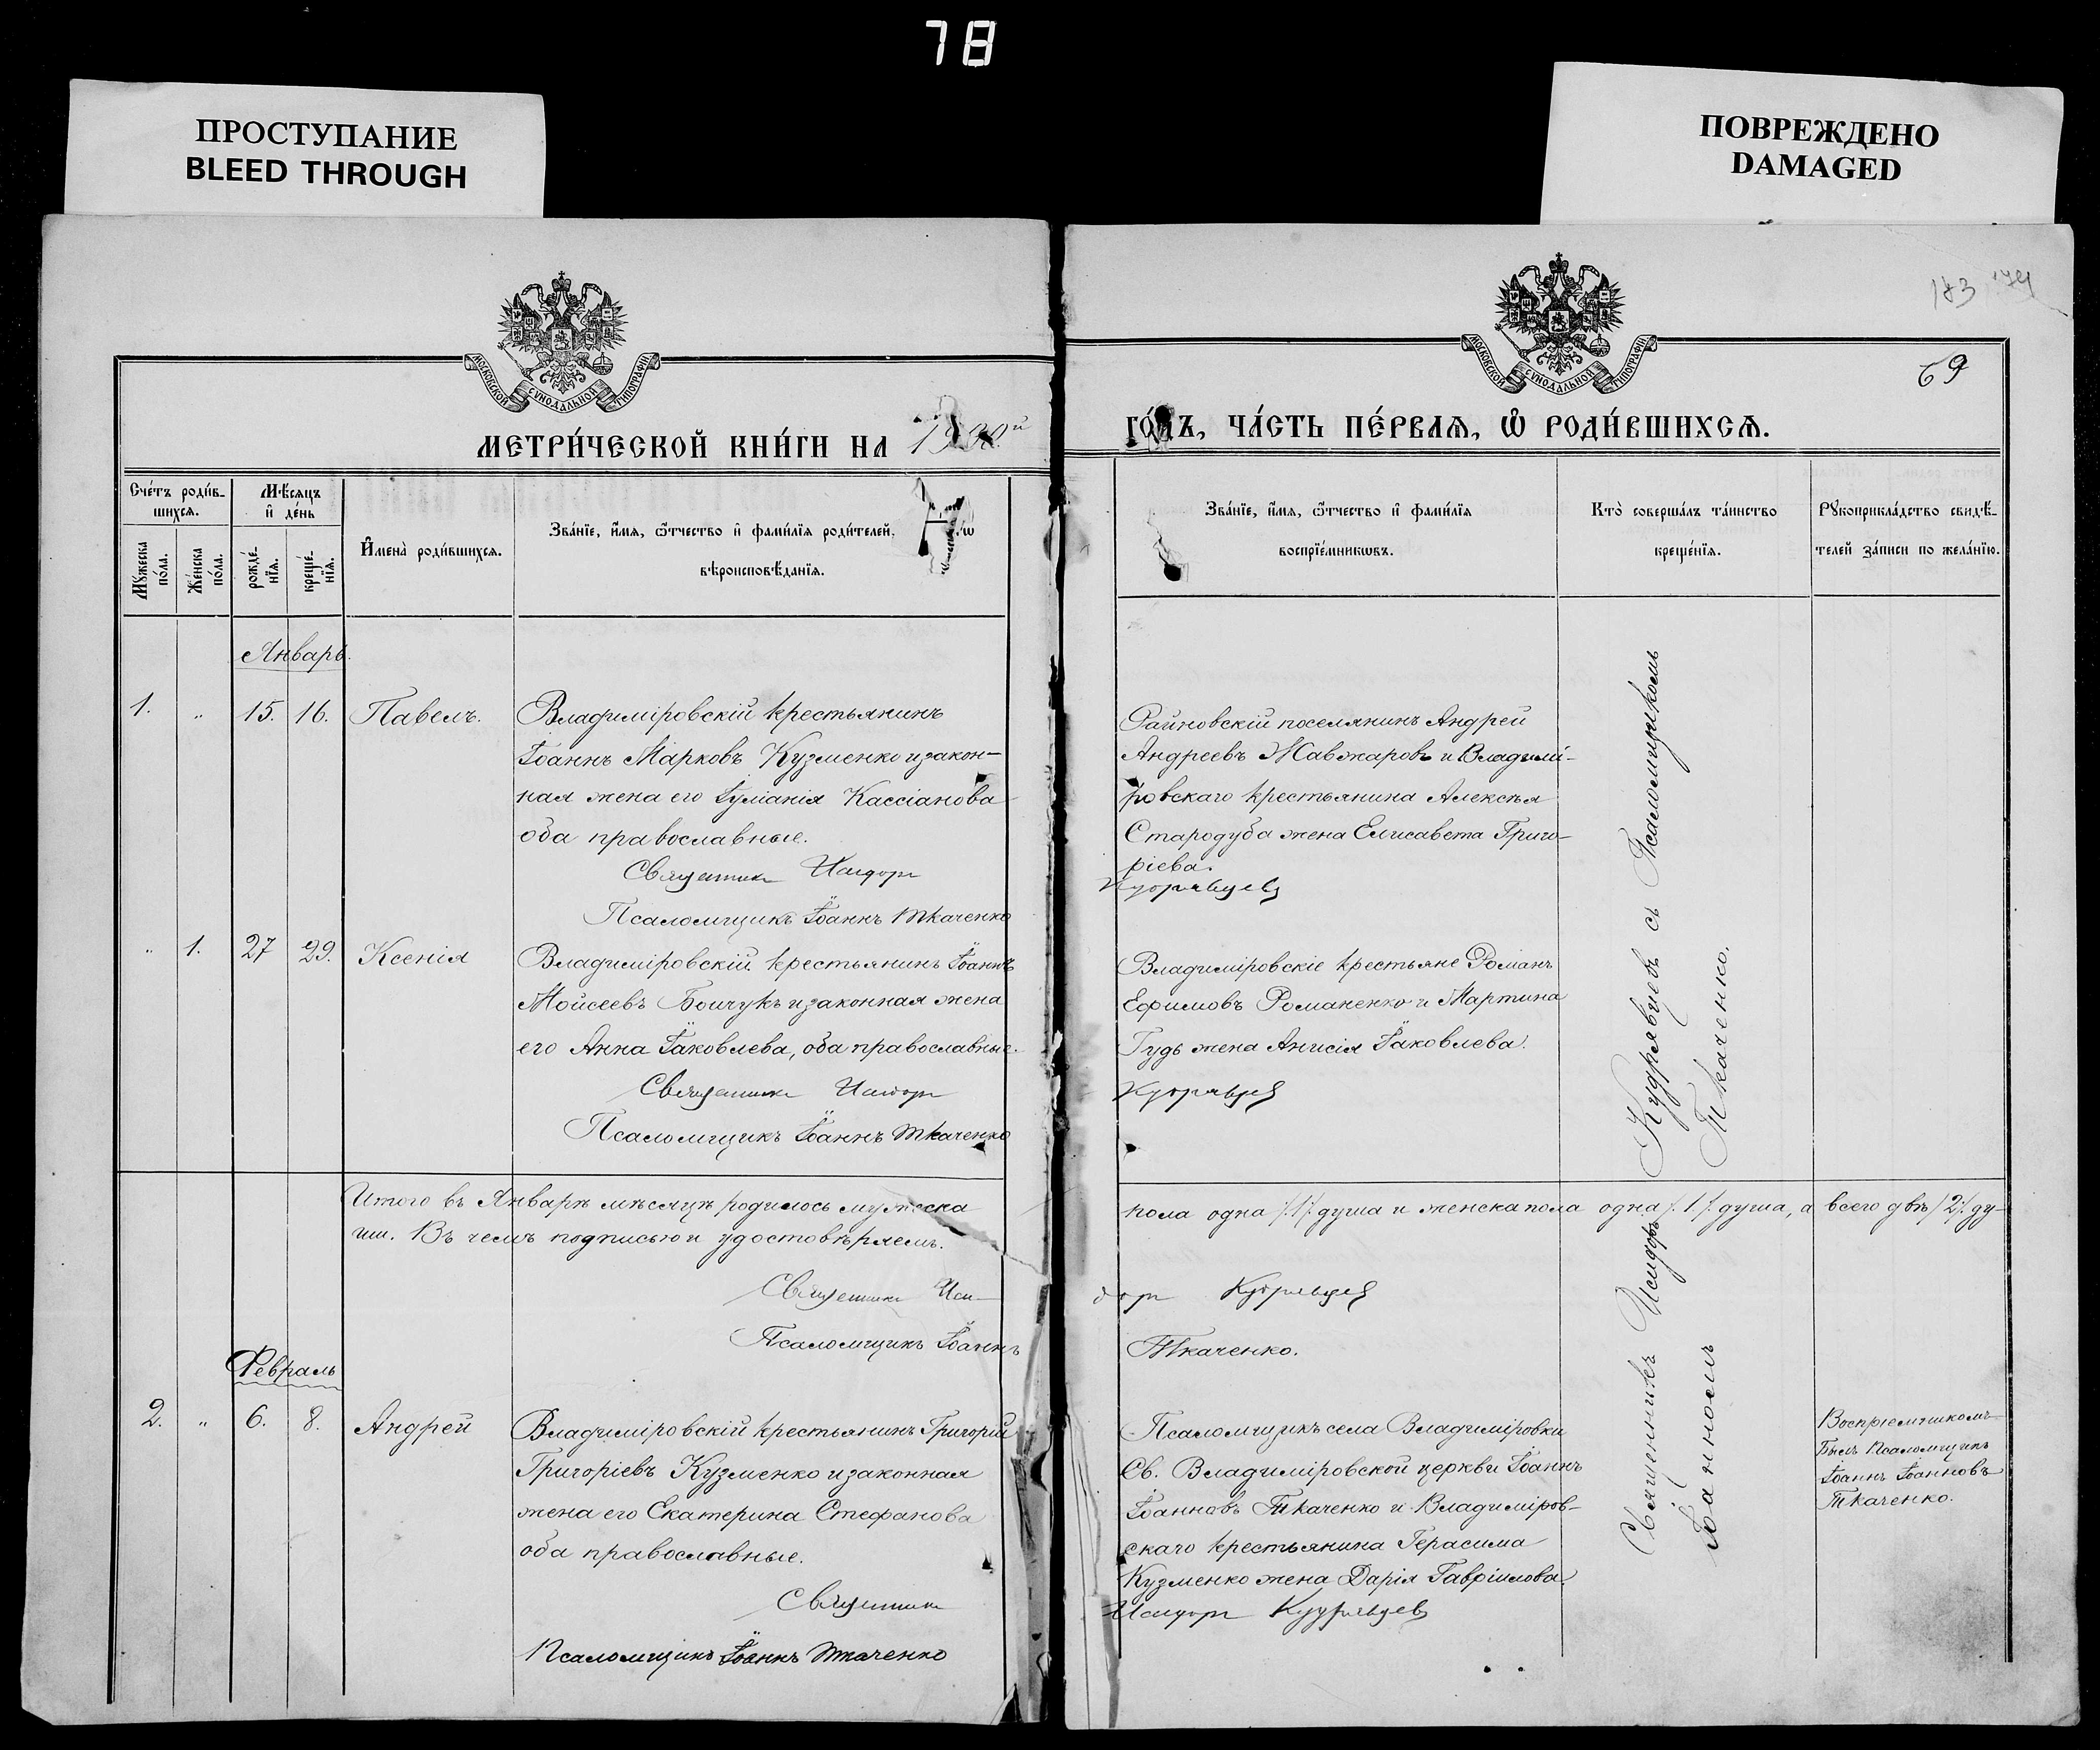 78
ПРОСТУПАНИЕ
BLEED THROUGH
ПОВРЕЖДЕНО
DAMAGED
183
69
МОСКОВСКОЙ СѴНОДАЛЬНОЙ ТИПОГРАФІИ
МОСКОВСКОЙ СѴНОДАЛЬНОЙ ТИПОГРАФІИ
МЕТРИ́ЧЕСКОЙ КНИ́ГИ НА
ГО́ДЪ, ЧА́СТЬ ПЕ́РВАѦ, Ѿ РОДИ́ВШИХСѦ.
Сче́тъ роди́в-
шихсѧ.
Мꙋ́жеска по́ла.
Же́нска по́ла.
Мѣ́сѧцъ
и҆ де́нь
рожде́-
нїѧ.
креще́-
нїѧ.
И҆мена̀ роди́вшихсѧ.
Зва́нїе, и҆́мѧ, ѻ҆́тчество и҆ фами́лїѧ роди́телей,
вѣроисповѣ́данїѧ.
Зва́нїе, и҆́мѧ, ѻ҆́тчество и҆ фами́лїѧ
воспрїе́мникѡвъ.
Кто̀ соверша́лъ та́инство
креще́нїѧ.
Рꙋкоприкла́дство свидѣ́-
телей за́писи по жела́нїю.
Январь.
1. „ 15. 16. Павелъ.
Владиміровскій крестьянинъ
Іоаннъ Марковъ Кузменко и закон-
ная жена его Іуліанія Кассіанова
оба православные.
Священник Исидор
Псаломщикъ Іоаннъ Ткаченко
Райновскій поселянинъ Андрей
Андреевъ Жавжаровъ и Владимі-
ровскаго крестьянина Алексѣя
Стародуба жена Елисавета Григо-
ріева.
Кудрявцев
„ 1. 27 29. Ксенія
Владиміровскій крестьянинъ Іоаннъ
Мойсеевъ Бойчукъ и законная жена
его Анна Іаковлева, оба православные.
Священник Исидор
Псаломщикъ Іоаннъ Ткаченко
Владиміровскіе крестьяне Романъ
Ефимовъ Романенко и Мартина
Гудь жена Анисія Іаковлева.
Кудрявцев
Итого въ Январѣ мѣсяцѣ родилось мужеска
пола одна /.1./ душа и женска пола одна /.1./ душа, а всего двѣ /.2./ ду-
ши. Въ чемъ подписью и удостовѣряемъ.
Священник Иси-
дор Кудрявцев
Псаломщикъ Іоаннъ
Ткаченко.
Февраль
2. „ 6. 8. Андрей
Владиміровскій крестьянинъ Григорій
Григоріевъ Кузменко и законная
жена его Екатерина Стефанова
оба православные.
Священник
Псаломщикъ Іоаннъ Ткаченко
Псаломщикъ села Владиміровки
Св. Владиміровской церкви Іоаннъ
Іоанновъ Ткаченко и Владиміров-
скаго крестьянина Герасима
Кузменко жена Дарія Гавріилова.
Исидор Кудрявцев
Священникъ Исидоръ Кудрявцевъ съ Псаломщикомъ
Іоанномъ Ткаченко.
Воспріемникомъ
Былъ Псаломщикъ
Іоаннъ Іоанновъ
Ткаченко.